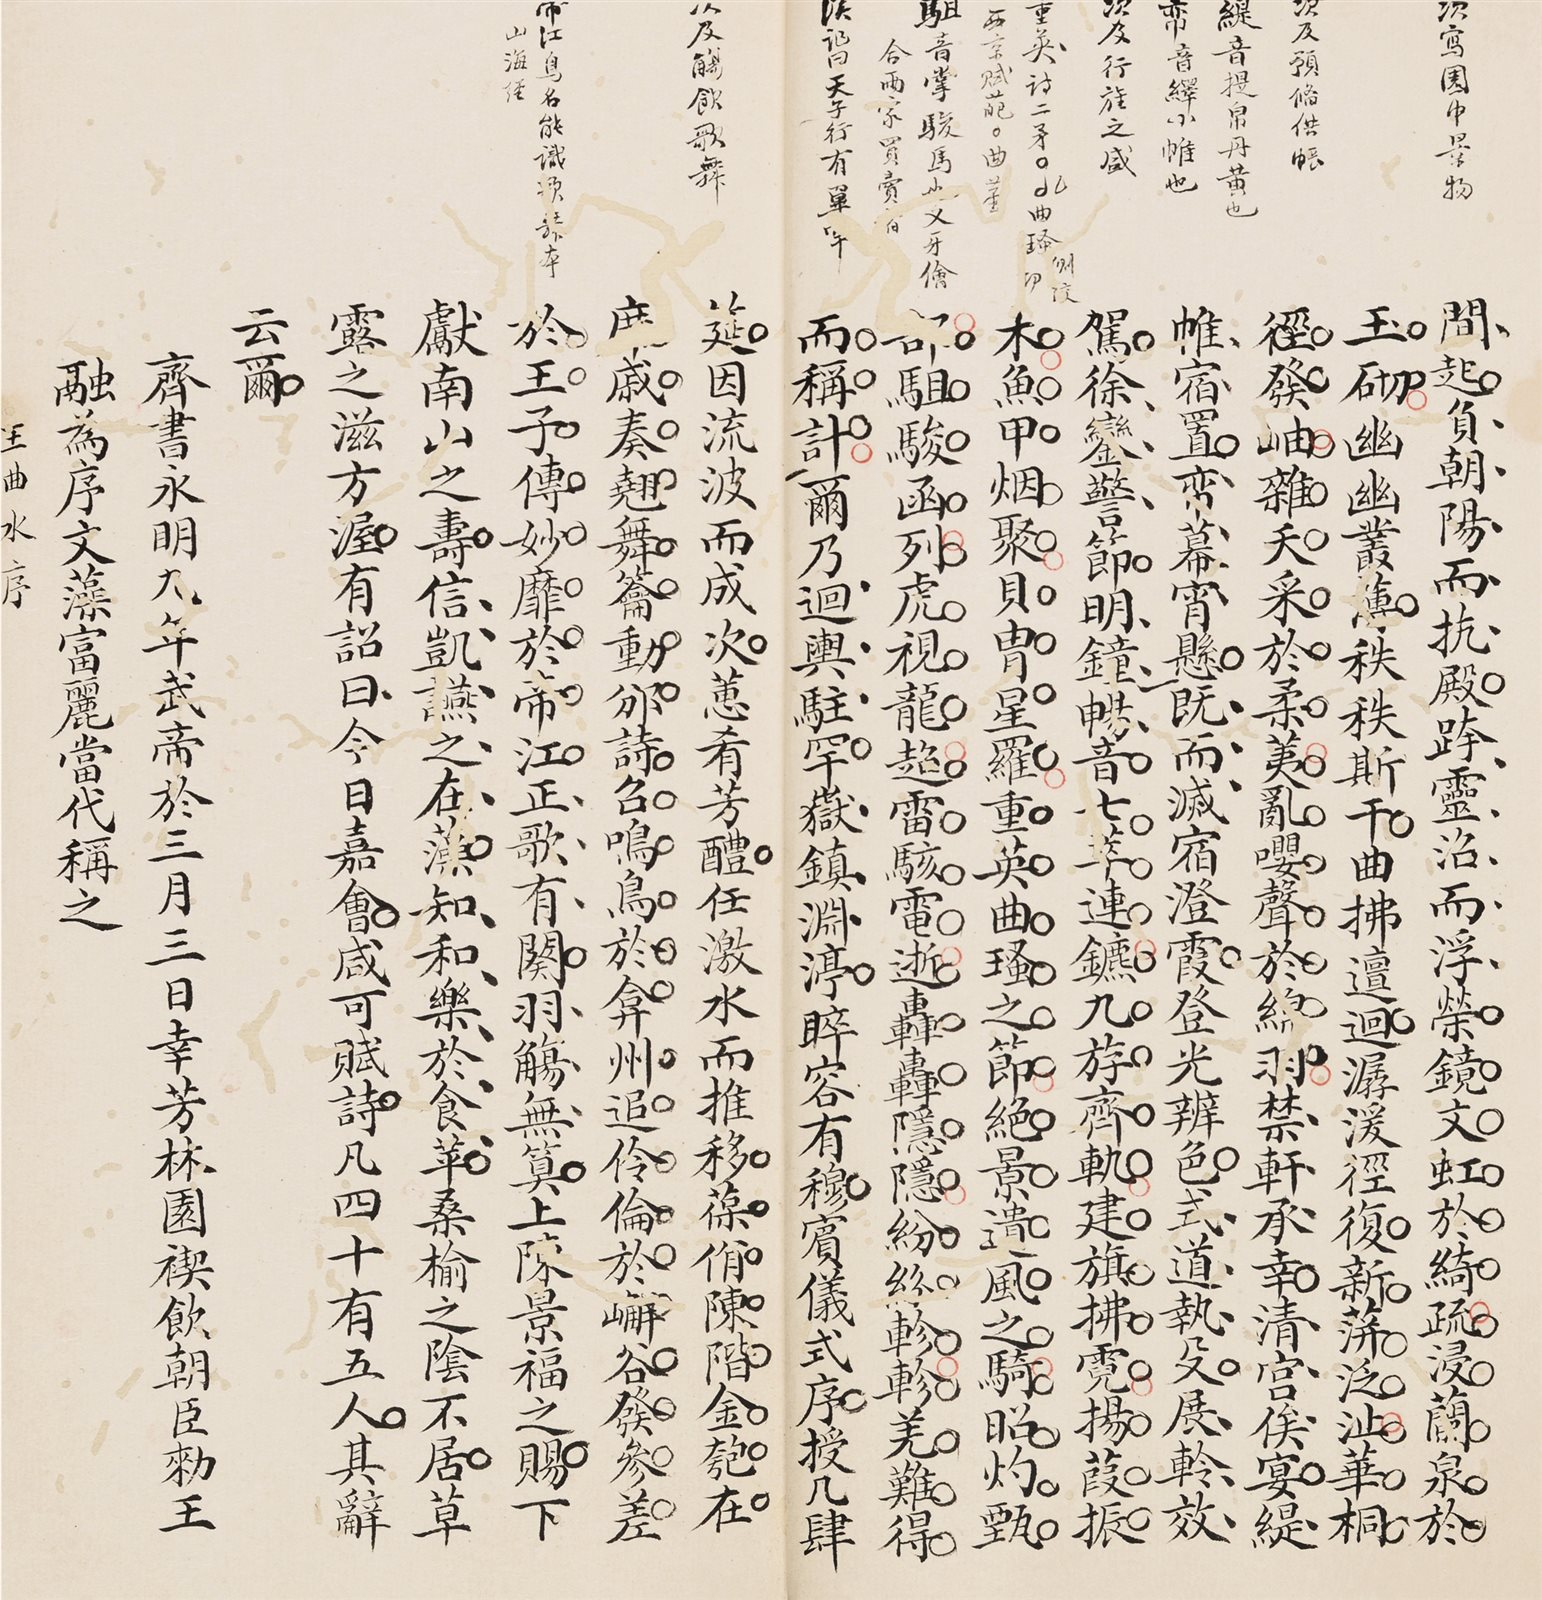 次寫園中景物
次及預脩供帳
緹音提帛丹黃也
帟音繹小帷也
次及行旌之盛
重英詩二矛
西京賦葩曲莖
駔音掌駿馬也又牙儈
合兩家買賣者
漢記曰天子行有單
次及觴飲歌舞
帝江鳥名能識歌舞本
山海經
間起負朝陽而抗殿跨靈沼而浮榮鏡文虹於綺疏浸蘭泉於
玉砌幽幽叢薄秩秩斯干曲拂邅迴潺湲徑復新萍泛沚華桐
徑發岫雜夭采於柔荑亂嚶聲於綿羽禁軒承幸清宮俟宴緹
帷宿置帟幕宵懸既而滅宿澄霞登光辨色式道執殳展軨效
駕徐鑾警節明鐘暢音七萃連鑣九斿齊軌建旗拂霓揚葭振
木魚甲烟聚貝冑星羅重英曲瑵之節絕景遺風之騎昭灼甄
部駔駿函列虎視龍超雷駭電逝轟轟隱隱紛紛軫軫羌難得
而稱計爾乃迴輿駐罕嶽鎮淵渟睟容有穆賓儀式序授几肆
筵因流波而成次蕙肴芳醴任激水而推移葆佾陳階金匏在
席戚奏翹舞籥動邠詩召鳴鳥於弇州追伶倫於嶰谷發參差
於王子傳妙靡於帝江正歌有闋羽觴無筭上陳景福之賜下
獻南山之壽信凱讌之在藻知和樂於食苹桑榆之陰不居草
露之滋方渥有詔曰今日嘉會咸可賦詩凡四十有五人其辭
云爾
齊書永明九年武帝於三月三日幸芳林園禊飲朝臣勑王
融為序文藻富麗當代稱之
王曲水序